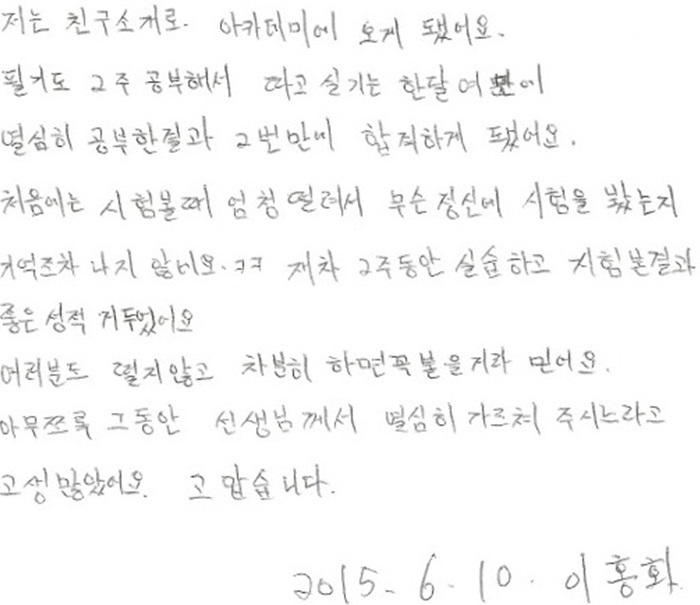 저는 친구소개로. 아카데미에 오게 됐어요.
필기도 2주 공부해서 따고 실기는 한달여만에
열심히 공부한결과 2번만에 합격하게 됐어요.
처음에는 시험볼때 엄청 떨려서 무슨정신에 시험을 봤는지
기억조차 나지 않네요.ㅋㅋ 재차 2주동안 실습하고 시험본결과
좋은 성적 거두었어요
여러분도 떨지않고 차분히 하면꼭붙을거라 믿어요.
아무쪼록 그동안 선생님께서 열심히 가르쳐 주시느라고
고생많았어요. 고맙습니다.
2015. 6. 10. 이홍화